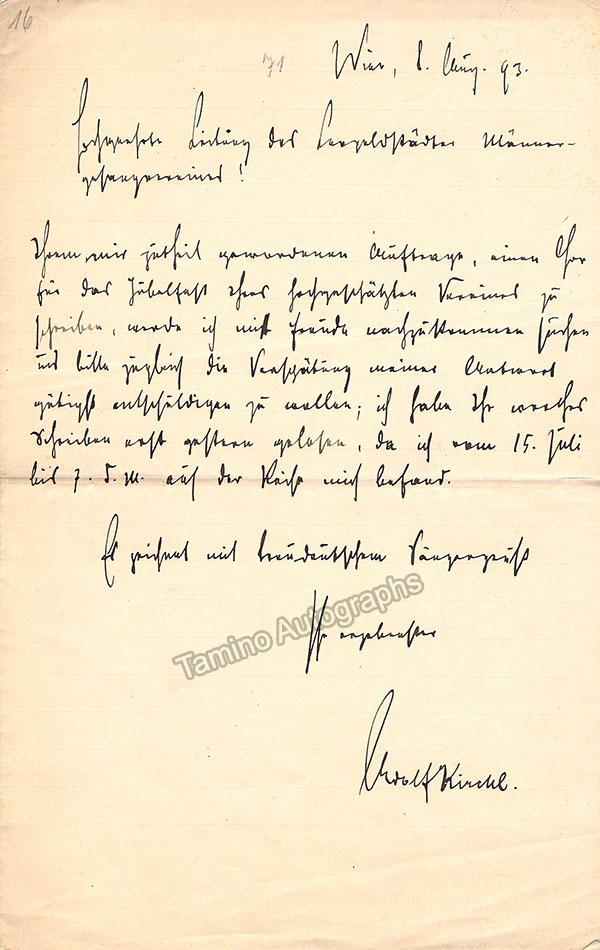 16
71
Wien, 8. Aug. 93.
Hochgeehrte Leitung des Leopoldstädter Männer-
gesangvereines!
Ihrem, mir zutheil gewordenen Auftrage, einen Chor
für das Jubelfest Ihres hochgeschätzten Vereines zu
schreiben, werde ich mit Freude nachzukommen suchen
und bitte zugleich die Verspätung meiner Antwort
gütigst entschuldigen zu wollen; ich habe Ihr werthes
Schreiben erst gestern gelesen, da ich vom 15. Juli
bis 7. d. M. auf der Reise mich befand.
Es zeichnet mit treudeutschem Sängergruß
Ihr ergebenster
Adolf Kirchl.
Tamino Autographs